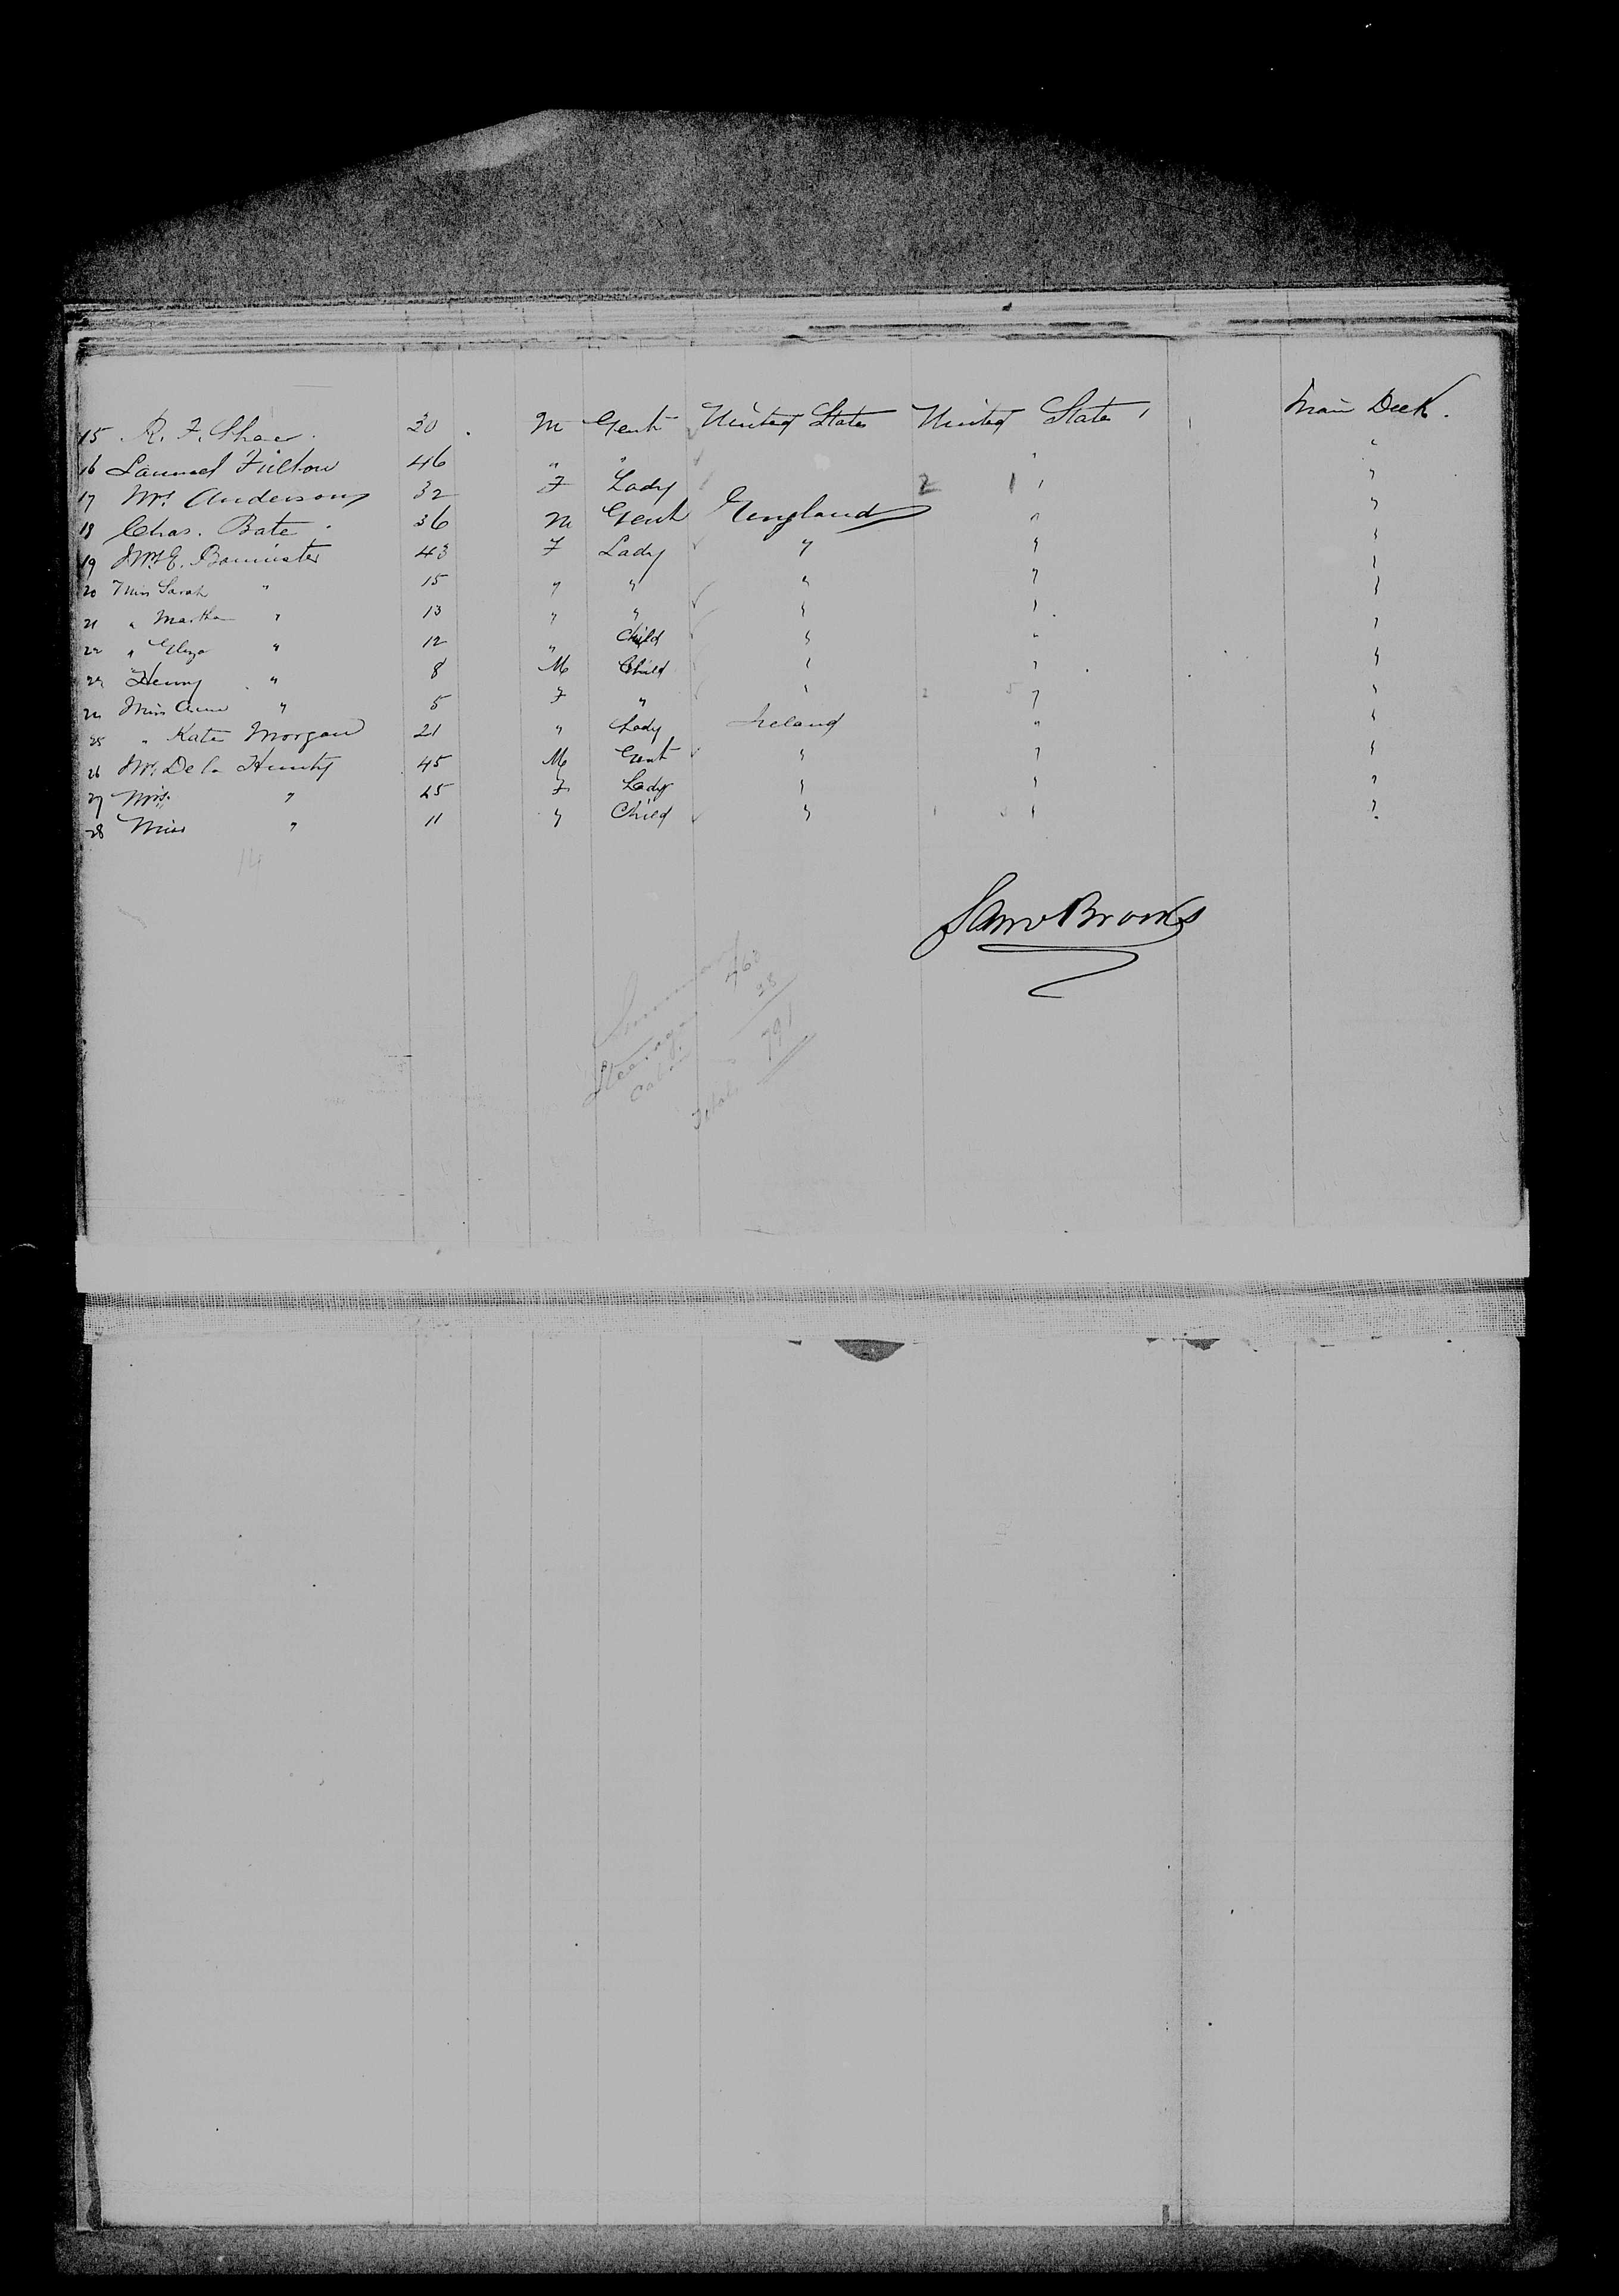 15 R. F. Shaw. 30 . M Gent United States United States Main Deck.
16 Samuel Fulton 46 " " "
17 Mrs. Anderson 32 F Lady 2 1 "
18 Chas. Bate. 36 M Gent England " "
19 Mrs. E. Bannister 43 F Lady " " "
20 Miss Sarah " 15 " " " " "
21 " Martha " 13 " " " " "
22 " Eliza " 12 " Child " " "
23 Henry " 8 M Child " " "
24 Miss Annie " 5 F " " " "
25 " Kate Morgan 21 " Lady Ireland " "
26 Mr. De la Hunty 45 M Gent " " "
27 Mrs. " 45 F Lady " " "
28 Miss " 11 " Child " " "
14
Saml Brooks
Summary
Steerage 763
Cabin 28
Total 791